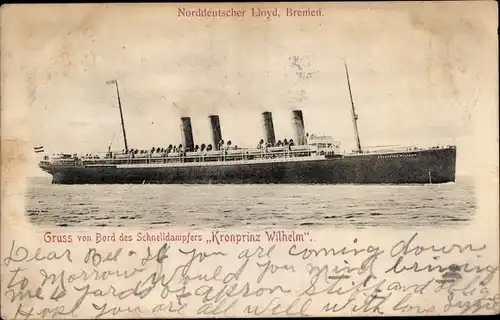 Norddeutscher Lloyd, Bremen.
KRONPRINZ WILHELM
Gruss von Bord des Schnelldampfers „Kronprinz Wilhelm".
Dear Bee - If you are coming down
to Morrow would you mind bringing
me 4 yards of apron stuff and
Hope you are all well with love